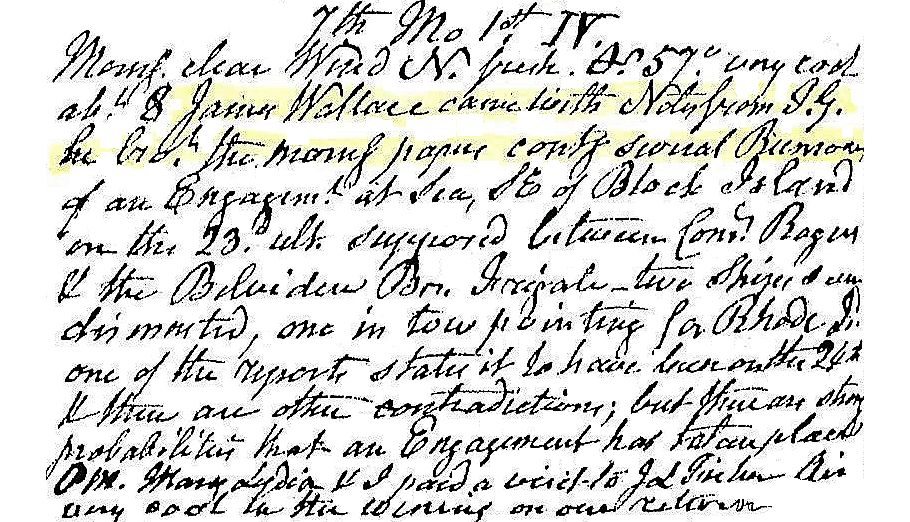 7th Mo 1st IV
Morng. clear Wind N. fresh. & 57.° very cool
abt. 8 James Wallace came with Notes from I.G.
he brot. the morng papers contg several Rumours
of an Engagemt. at Sea, SE of Block Island
on the 23d. ult. supposed between Comr. Rogers
& the Belvidere Bri. Frigate – two Ships seen
dismasted, one in tow pointing for Rhode Id.
one of the reports states it to have been on the 24th
& there are other contradictions; but there are strong
probabilities that an Engagement has taken place
PM. Mary Lydia & I paid a visit to Jd Fisher Air
very cool in the evening on our return